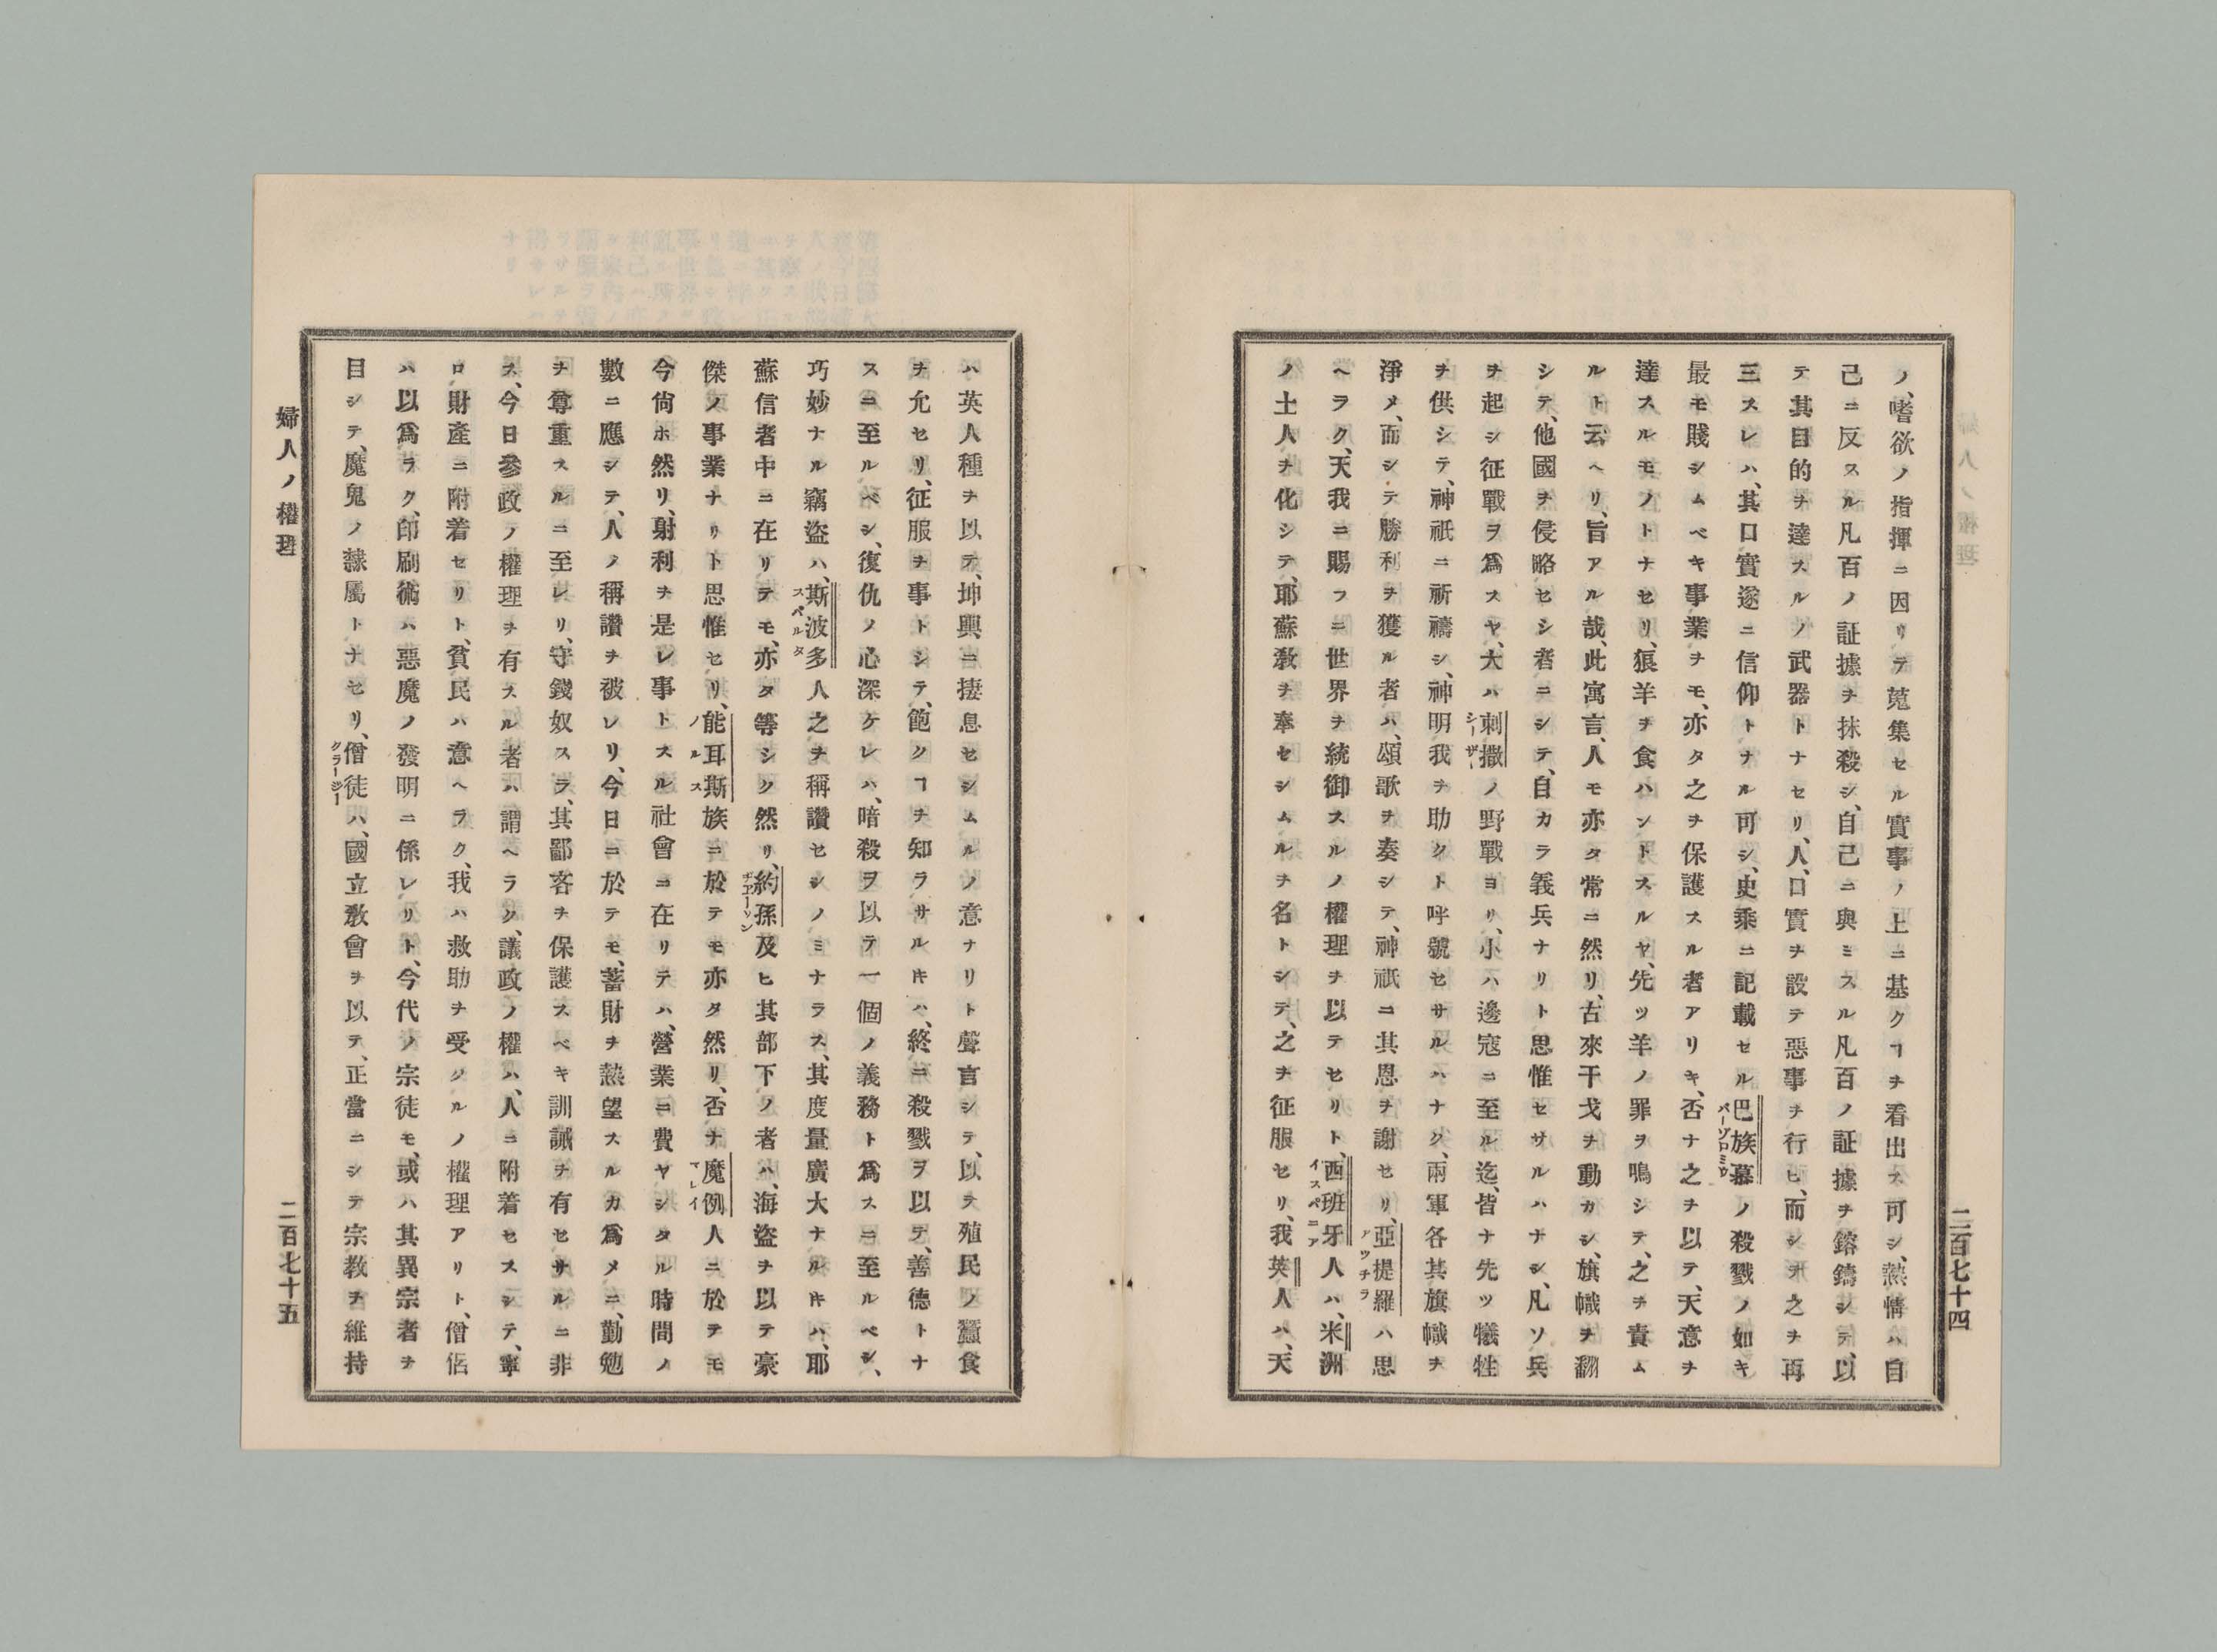 ノ、嗜欲ノ指揮ニ因リテ蒐集セル實事ノ上ニ基クヿヲ看出ス可シ、熱情ハ自
己ニ反スル凡百ノ証據ヲ抹殺シ、自己ニ與ミスル凡百ノ証據ヲ鎔鑄シテ、以
テ其目的ヲ達スルノ武器トナセリ、人、口實ヲ設テ惡事ヲ行ヒ、而シテ之ヲ再
三スレハ、其口實遂ニ信仰トナル可シ、史乘ニ記載セル巴族慕ノ殺戮ノ如キ
バーソロミウ
最モ賤シムベキ事業ヲモ、亦タ之ヲ保護スル者アリキ、否ナ之ヲ以テ、天意ヲ
達スルモノトナセリ、狼羊ヲ食ハントスルヤ、先ツ羊ノ罪ヲ鳴シテ、之ヲ責ム
ルト云ヘリ、旨アル哉、此寓言、人モ亦タ常ニ然リ、古來干戈ヲ動カシ、旗幟ヲ翻
シテ、他國ヲ侵略セシ者ニシテ、自カラ義兵ナリト思惟セサルハナシ、凡ソ兵
ヲ起シ征戰ヲ爲スヤ、大ハ刺撒ノ野戰ヨリ、小ハ邊寇ニ至ル迄、皆ナ先ツ犧牲
シーザー
ヲ供シテ、神祇ニ祈禱シ、神明我ヲ助クト呼號セサルハナク、兩軍各其旗幟ヲ
淨メ、而シテ勝利ヲ獲ル者ハ、頌歌ヲ奏シテ、神祇ニ其恩ヲ謝セリ、亞提羅ハ思
アツチラ
ヘラク、天我ニ賜フニ世界ヲ統御スルノ權理ヲ以テセリト、西班牙人ハ、米洲
イスペニア
ノ土人ヲ化シテ、耶蘇敎ヲ奉セシムルヲ名トシテ、之ヲ征服セリ、我英人ハ、天
二百七十四
ハ英人種ヲ以テ、坤輿ニ捿息セシムルノ意ナリト聲言シテ、以テ殖民ノ蠶食
ヲ允セリ、征服ヲ事トシテ、飽クヿヲ知ラサルキハ、終ニ殺戮ヲ以テ、善德トナ
スニ至ルベシ、復仇ノ心深ケレハ、暗殺ヲ以テ一個ノ義務ト爲スニ至ルベシ、
巧妙ナル竊盜ハ、斯波多人之ヲ稱讚セシノミナラス、其度量廣大ナルキハ、耶
スペルタ
蘇信者中ニ在リテモ、亦タ等シク然リ、約孫及ヒ其部下ノ者ハ、海盜ヲ以テ豪
傑ノ事業ナリト思惟セリ、能耳斯族ニ於テモ亦タ然リ、否ナ魔例人ニ於テモ
ノルス
マレイ
今尙ホ然リ、射利ヲ是レ事トスル社會ニ在リテハ、營業ニ費ヤシタル時間ノ
數ニ應シテ、人ノ稱讚ヲ被レリ、今日ニ於テモ、蓄財ヲ熱望スルカ爲メニ、勤勉
ヲ尊重スルニ至レリ、守錢奴スラ、其鄙吝ヲ保護スベキ訓誡ヲ有セサルニ非
ス、今日參政ノ權理ヲ有スル者ハ謂ヘラク、議政ノ權ハ、人ニ附着セスシテ、寧
ロ財產ニ附着セリト、貧民ハ意ヘラク、我ハ救助ヲ受クルノ權理アリト、僧侶
ハ以爲ラク、印刷術ハ惡魔ノ發明ニ係レリト、今代ノ宗徒モ、或ハ其異宗者ヲ
目シテ、魔鬼ノ隸屬トナセリ、僧徒ハ、國立敎會ヲ以テ、正當ニシテ宗敎ヲ維持
クラージー
婦人ノ權理
二百七十五